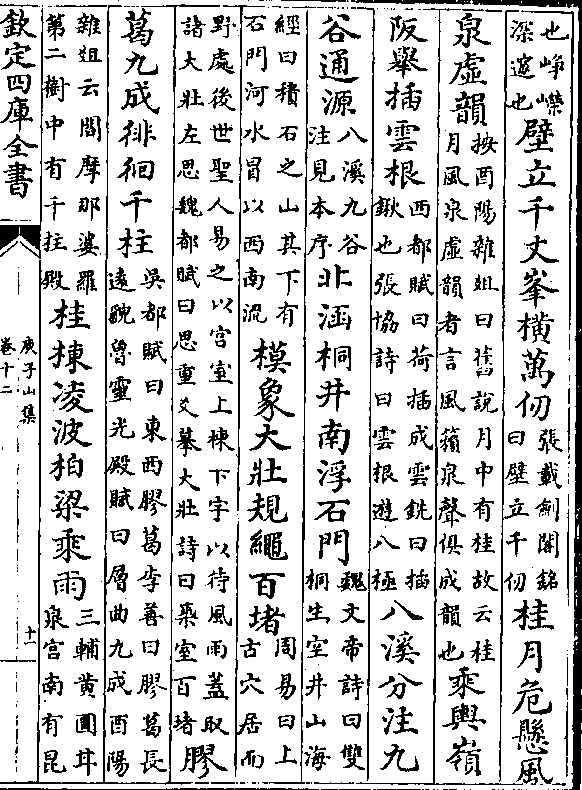 也崢嶸
深邃也
壁立千丈峯橫萬仞
張載劍閣銘
曰壁立千仞
桂月危懸風
泉虛韻
按酉陽雜俎曰舊說月中有桂故云桂
月風泉虛韻者言風籟泉聲俱成韻也
乘輿嶺
阪舉插雲根
西都賦曰荷插成雲銚曰插
鍬也張協詩曰雲根遊八極
八溪分注九
谷通源
八溪九谷
注見本序
北涵桐井南浮石門
魏文帝詩曰雙
桐生空井山海
經曰積石之山其下有
石門河水冒以西南流
模象大壯規繩百堵
周易曰上
古穴居而
野處後世聖人易之以宫室上棟下字以待風雨蓋取
諸大壯左思魏都賦曰思重爻摹大壯詩曰築室百堵
膠
葛九成徘徊千柱
吳都賦曰東西膠葛李善曰膠葛長
遠貌魯靈光殿賦曰層曲九成酉陽
雜俎云閻摩那婆羅
第二樹中有千柱殿
桂棟凌波柏梁乘雨
三輔黄圖甘
泉宫南有昆
欽定四庫全書
庚子山集
卷十二
十一